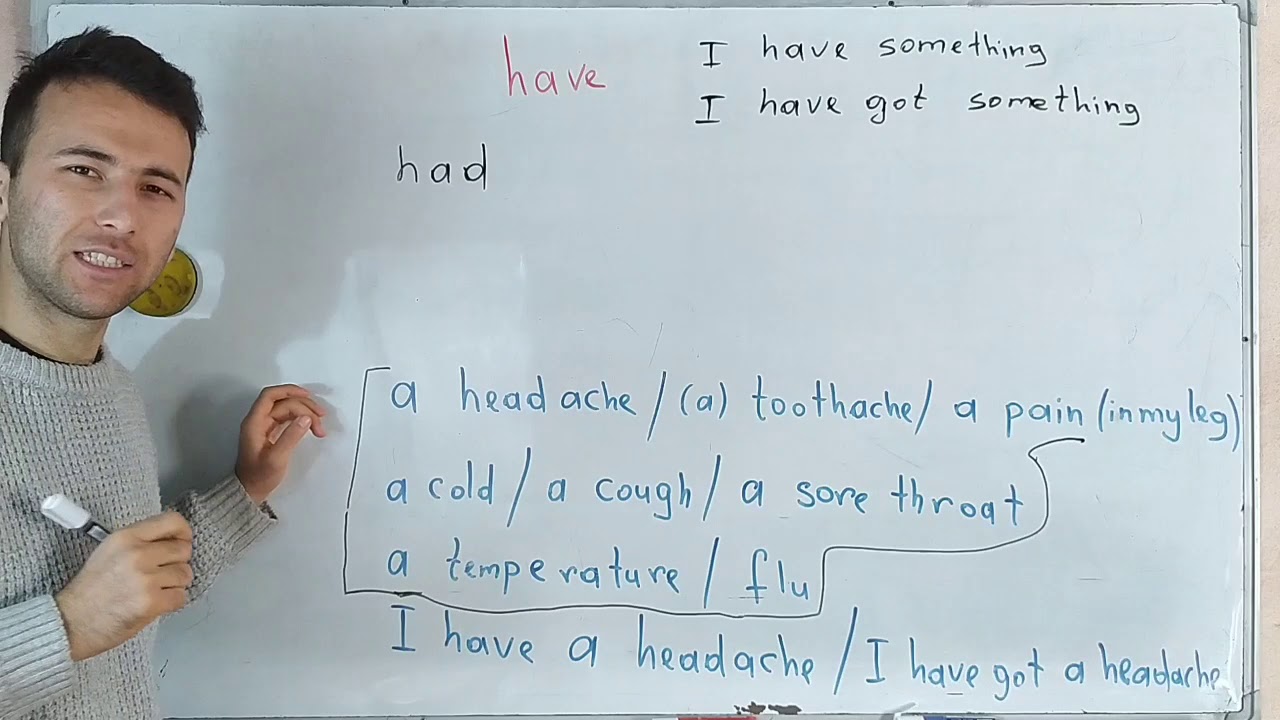 have
I have something
I have got something
had
a headache / (a) toothache / a pain (in my leg)
a cold / a cough / a sore throat
a temperature / flu
I have a headache / I have got a headache